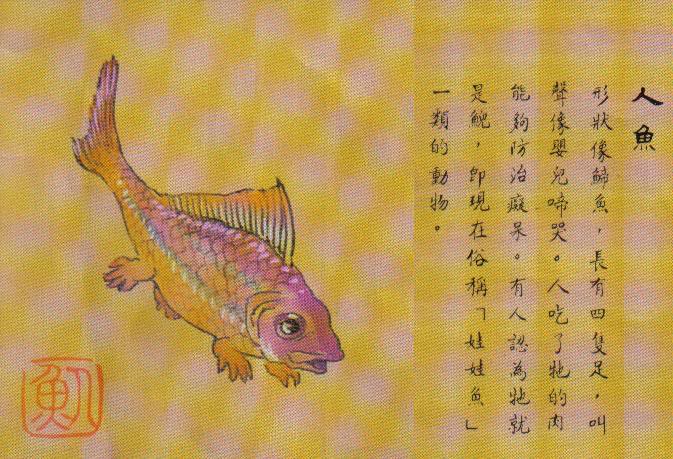 人魚
形狀像鯑魚，長有四隻足，叫
聲像嬰兒啼哭。人吃了牠的肉
能夠防治癡呆。有人認為牠就
是鯢，即現在俗稱「娃娃魚」
一類的動物。